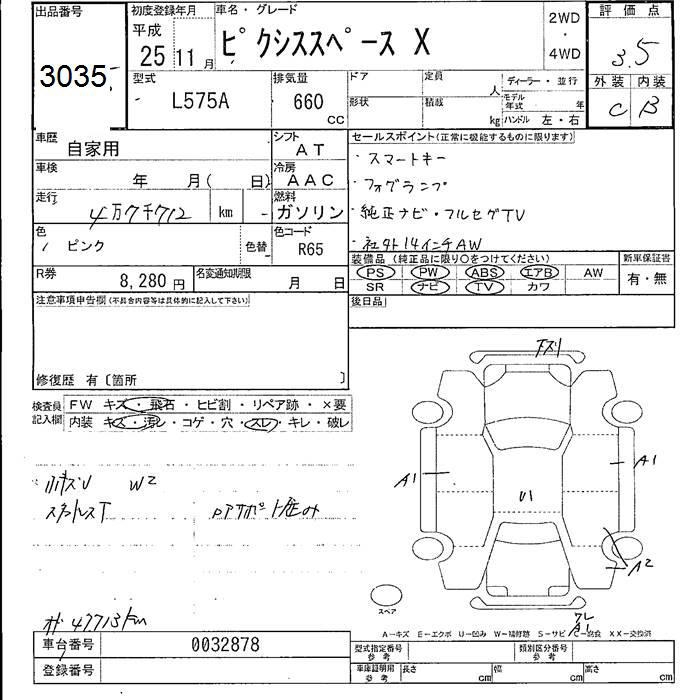 出品番号
3035
初度登録年月
平成
25 11月
車名・グレード
ピクシススペース X
2WD
・
4WD
評価点
3.5
型式
L575A
排気量
660
CC
ドア
形状
定員
人
積載
kg
ディーラー・並行
モデル年式
年
ハンドル 左・右
外装 内装
C B
車歴
自家用
シフト
AT
車検
年 月( 日)
冷房
AAC
走行
4万7千712 km
燃料
ガソリン
色
ピンク
色替
色コード
R65
R券
8,280 円
名変通知期限
月 日
セールスポイント(正常に機能するものに限ります)
・スマートキー
・フォグランプ
・純正ナビ・フルセグTV
・社外14インチAW
装備品(純正品に限り○をつけてください)
PS PW ABS エアB AW
SR ナビ TV カワ
新車保証書
有・無
後日品
注意事項申告欄(不具合内容等は具体的に記入して下さい)
修復歴 有〔箇所 〕
検査員
記入欄
FW キズ・飛石・ヒビ割・リペア跡・×要
内装 キズ・汚レ・コゲ・穴・スレ・キレ・破レ
W2
47713km
下ズリ
A1
A1
U1
A2
A1
スペア
A-キズ E-エクボ U-凹み W-補修跡 S-サビ C-腐食 XX-交換済
車台番号
0032878
登録番号
型式指定番号
参考
類別区分番号
参考
車庫証明用
参考
長さ
cm
幅
cm
高さ
cm